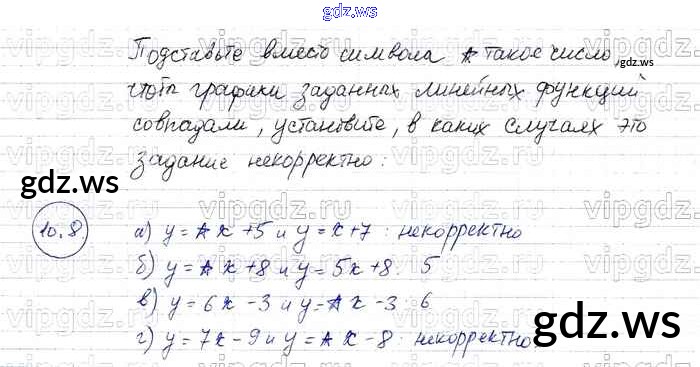 gdz.ws
Подставьте вместо символа * такое число,
чтобы графики заданных линейных функций
совпадали, установите, в каких случаях это
задание некорректно:
gdz.ws
gdz.ws
10.8.
а) y = * x + 5 и y = x + 7 : некорректно
б) y = * x + 8 и y = 5x + 8 : 5
в) y = 6x - 3 и y = * x - 3 : 6
г) y = 7x - 9 и y = * x - 8 : некорректно.
gdz.ws